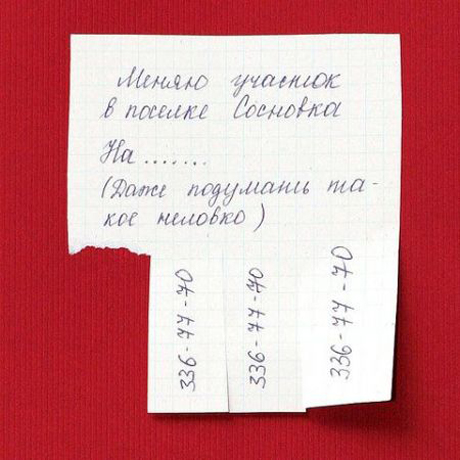 Меняю участок
в поселке Сосновка
На.......
(Даже подумать та-
кое неловко)
336-77-70
336-77-70
336-77-70